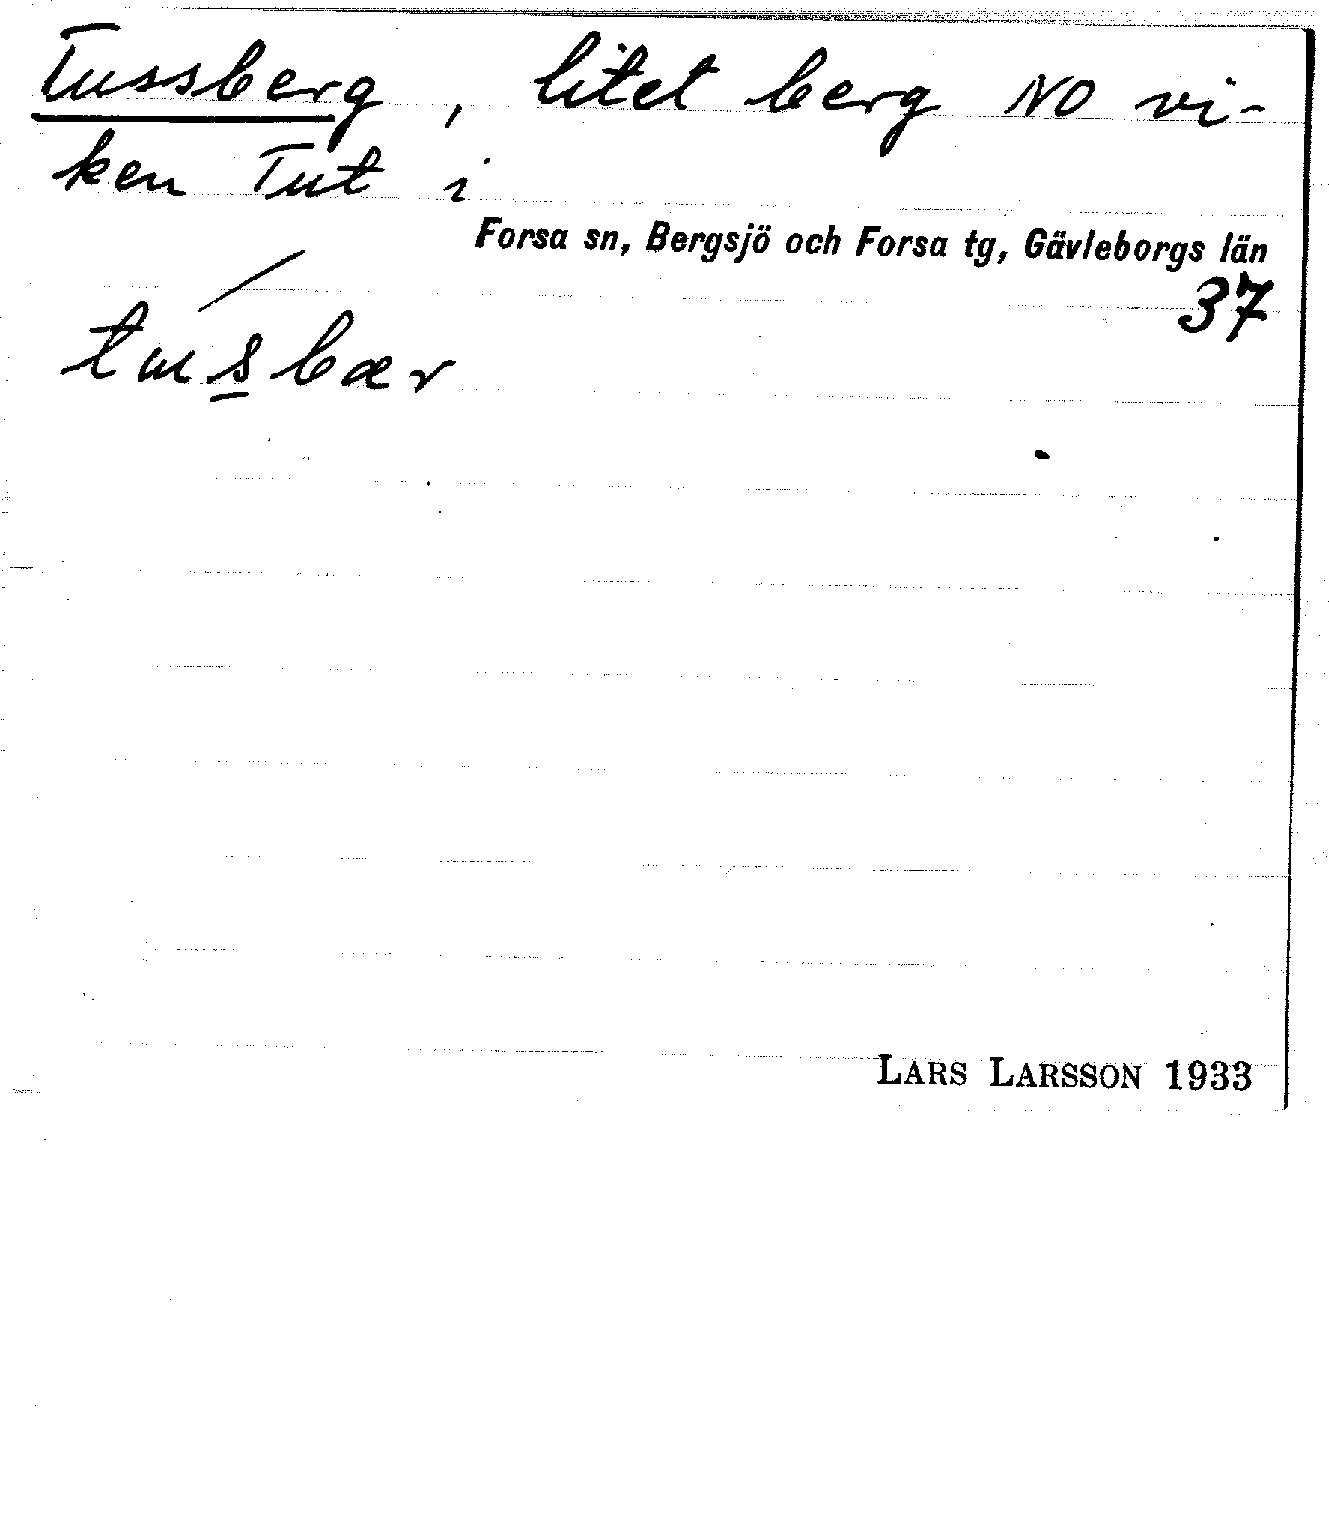 Tussberg, litet berg NO vi-
ken Tut i
Forsa sn, Bergsjö och Forsa tg, Gävleborgs län
37
tusbær
LARS LARSSON 1933